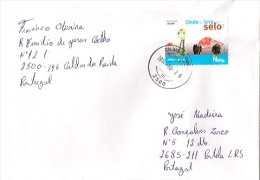 Francisco Oliveira
R. Emídio de Jesus Coelho
Nº 121
2500-146 Caldas da Rainha
Portugal
Onde o leva
selo
N20g
2500
José Madeira
R. Gonçalves Zarco
Nº 5 12 db.
2685-211 Portela LRS
Portugal